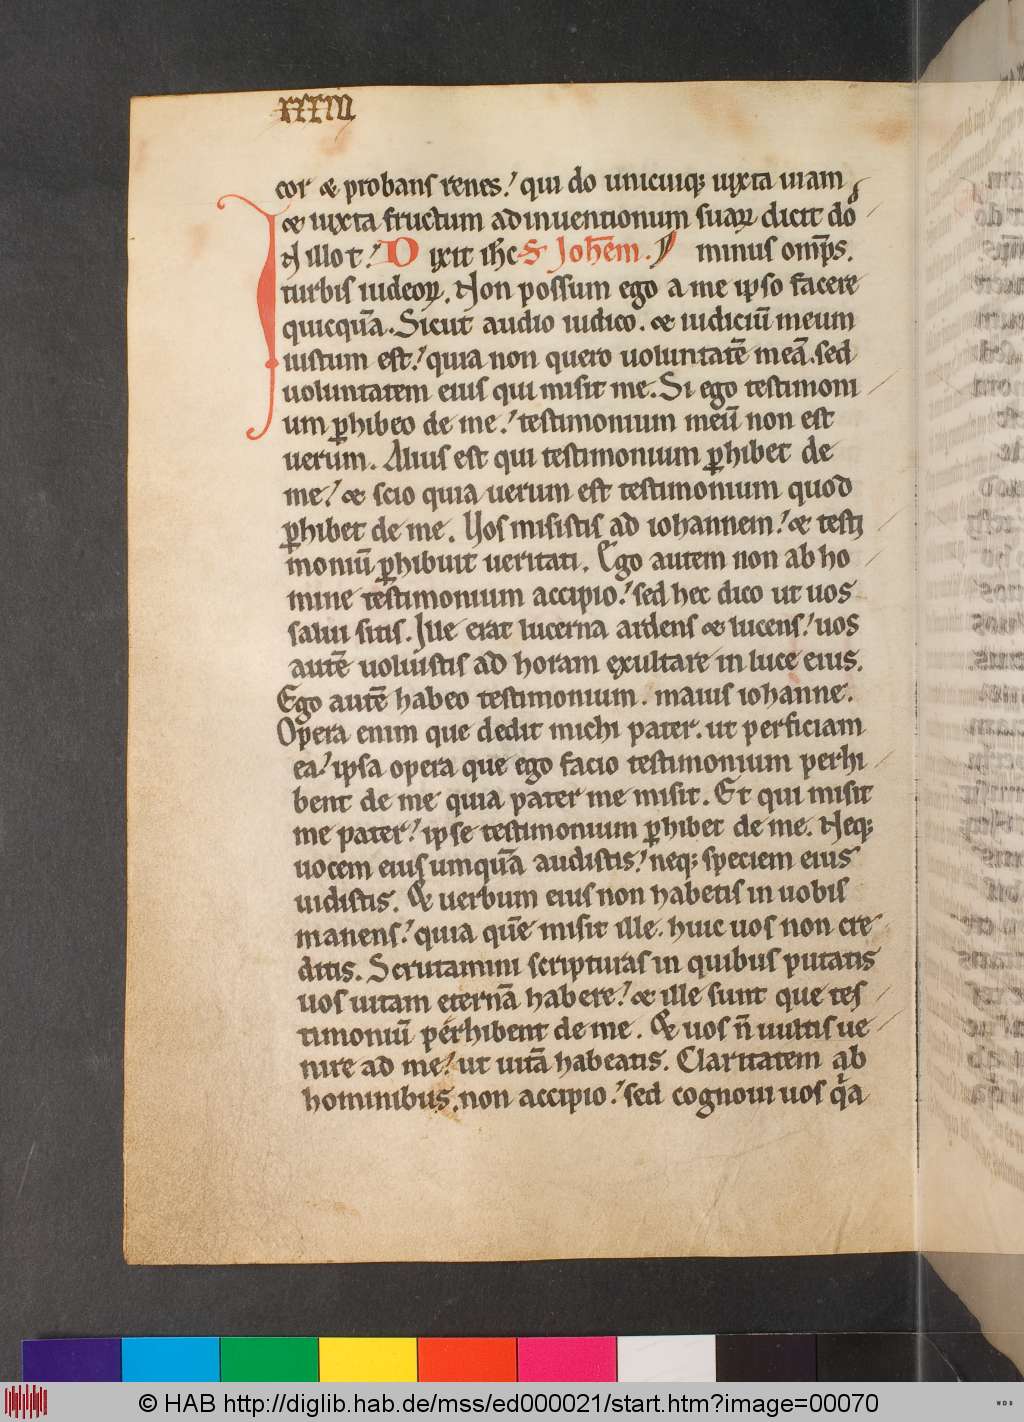 xxxiii
cor & probans renes! qui do unicuiq; iuxta uiam
& iuxta fructum adinuentionum suaꝝ dicit do
illor! Dixit ihc S Johem. minus omps.
turbis iudeoꝝ. Non possum ego a me ipso facere
quicquā. Sicut audio iudico. & iudiciū meum
iustum est! quia non quero uoluntatē meā. sed
uoluntatem eius qui misit me. Si ego testimoni
um ꝑhibeo de me! testimonium meū non est
uerum. Alius est qui testimonium ꝑhibet de
me! & scio quia uerum est testimonium quod
ꝑhibet de me. Uos misistis ad iohannem! & testi
moniū ꝑhibuit ueritati. Ego autem non ab ho
mine testimonium accipio! sed hec dico ut uos
salui sitis. Ille erat lucerna ardens & lucens! uos
autē uoluistis ad horam exultare in luce eius.
Ego autē habeo testimonium. maius iohanne.
Opera enim que dedit michi pater. ut perficiam
ea! ipsa opera que ego facio testimonium perhi
bent de me quia pater me misit. Et qui misit
me pater! ipse testimonium ꝑhibet de me. Neq;
uocem eius umquā audistis! neq; speciem eius
uidistis. & uerbum eius non habetis in uobis
manens! quia quē misit ille. huic uos non cre
ditis. Scrutamini scripturas in quibus putatis
uos uitam eternā habere! & ille sunt que tes
timoniū perhibent de me. & uos n̄ uultis ue
nire ad me! ut uitā habeatis. Claritatem ab
hominibus. non accipio! sed cognoui uos qͥa
© HAB http://diglib.hab.de/mss/ed000021/start.htm?image=00070